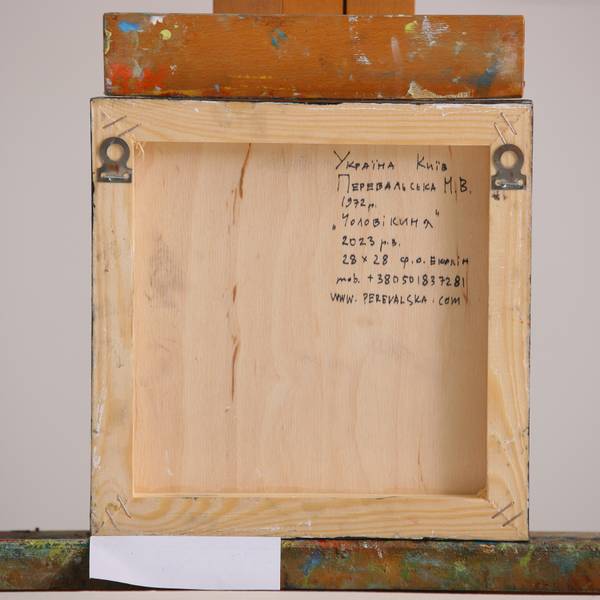 Україна Київ
Перевальська М.В.
1972 р.
„Чоловікиня"
2023 р.в.
28 x 28 ф.о.
mob. +380501837281
www.perevalska.com